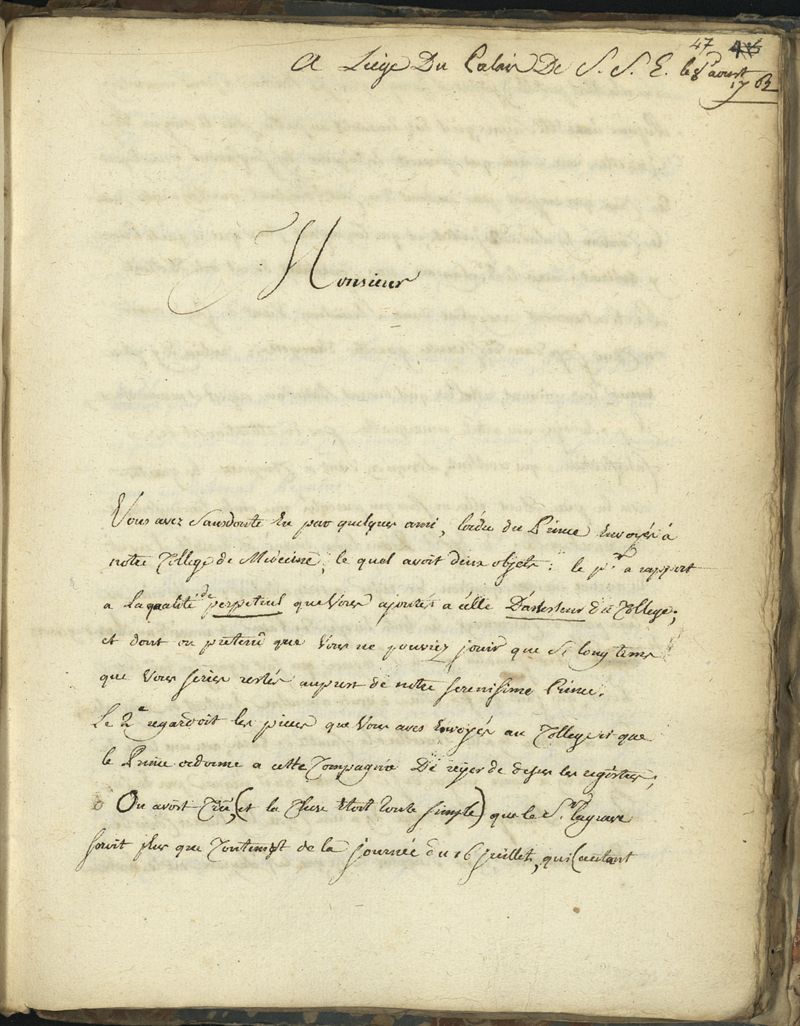 47
A Liège Du Palais De S. S. E. le 8 aoust
1763
Monsieur
Vous avez Sansdoute Eu par quelques ami, l'ordre du Prince Envoyés à
notre College de Medecine, le quel avoit deux objets: le pr. a rapport
a La qualité de perpetuel que Vous ajoutés à celle D'assesseur du College;
et dont on pretend que Vous ne pouviez jouir que Si long tems
que Vous seriés restés auprest de notre serenissime Prince.
Le 2e regardoit les pieces que Vous aves Envoyés au College et que
le Prince ordonne a cette Compagnie De reyer de desus les registres;
On avoit Cru, (et la Chose Etoit toute simple) que le Sr.
seroit plus que Content de la journée du 16 juillet, qui